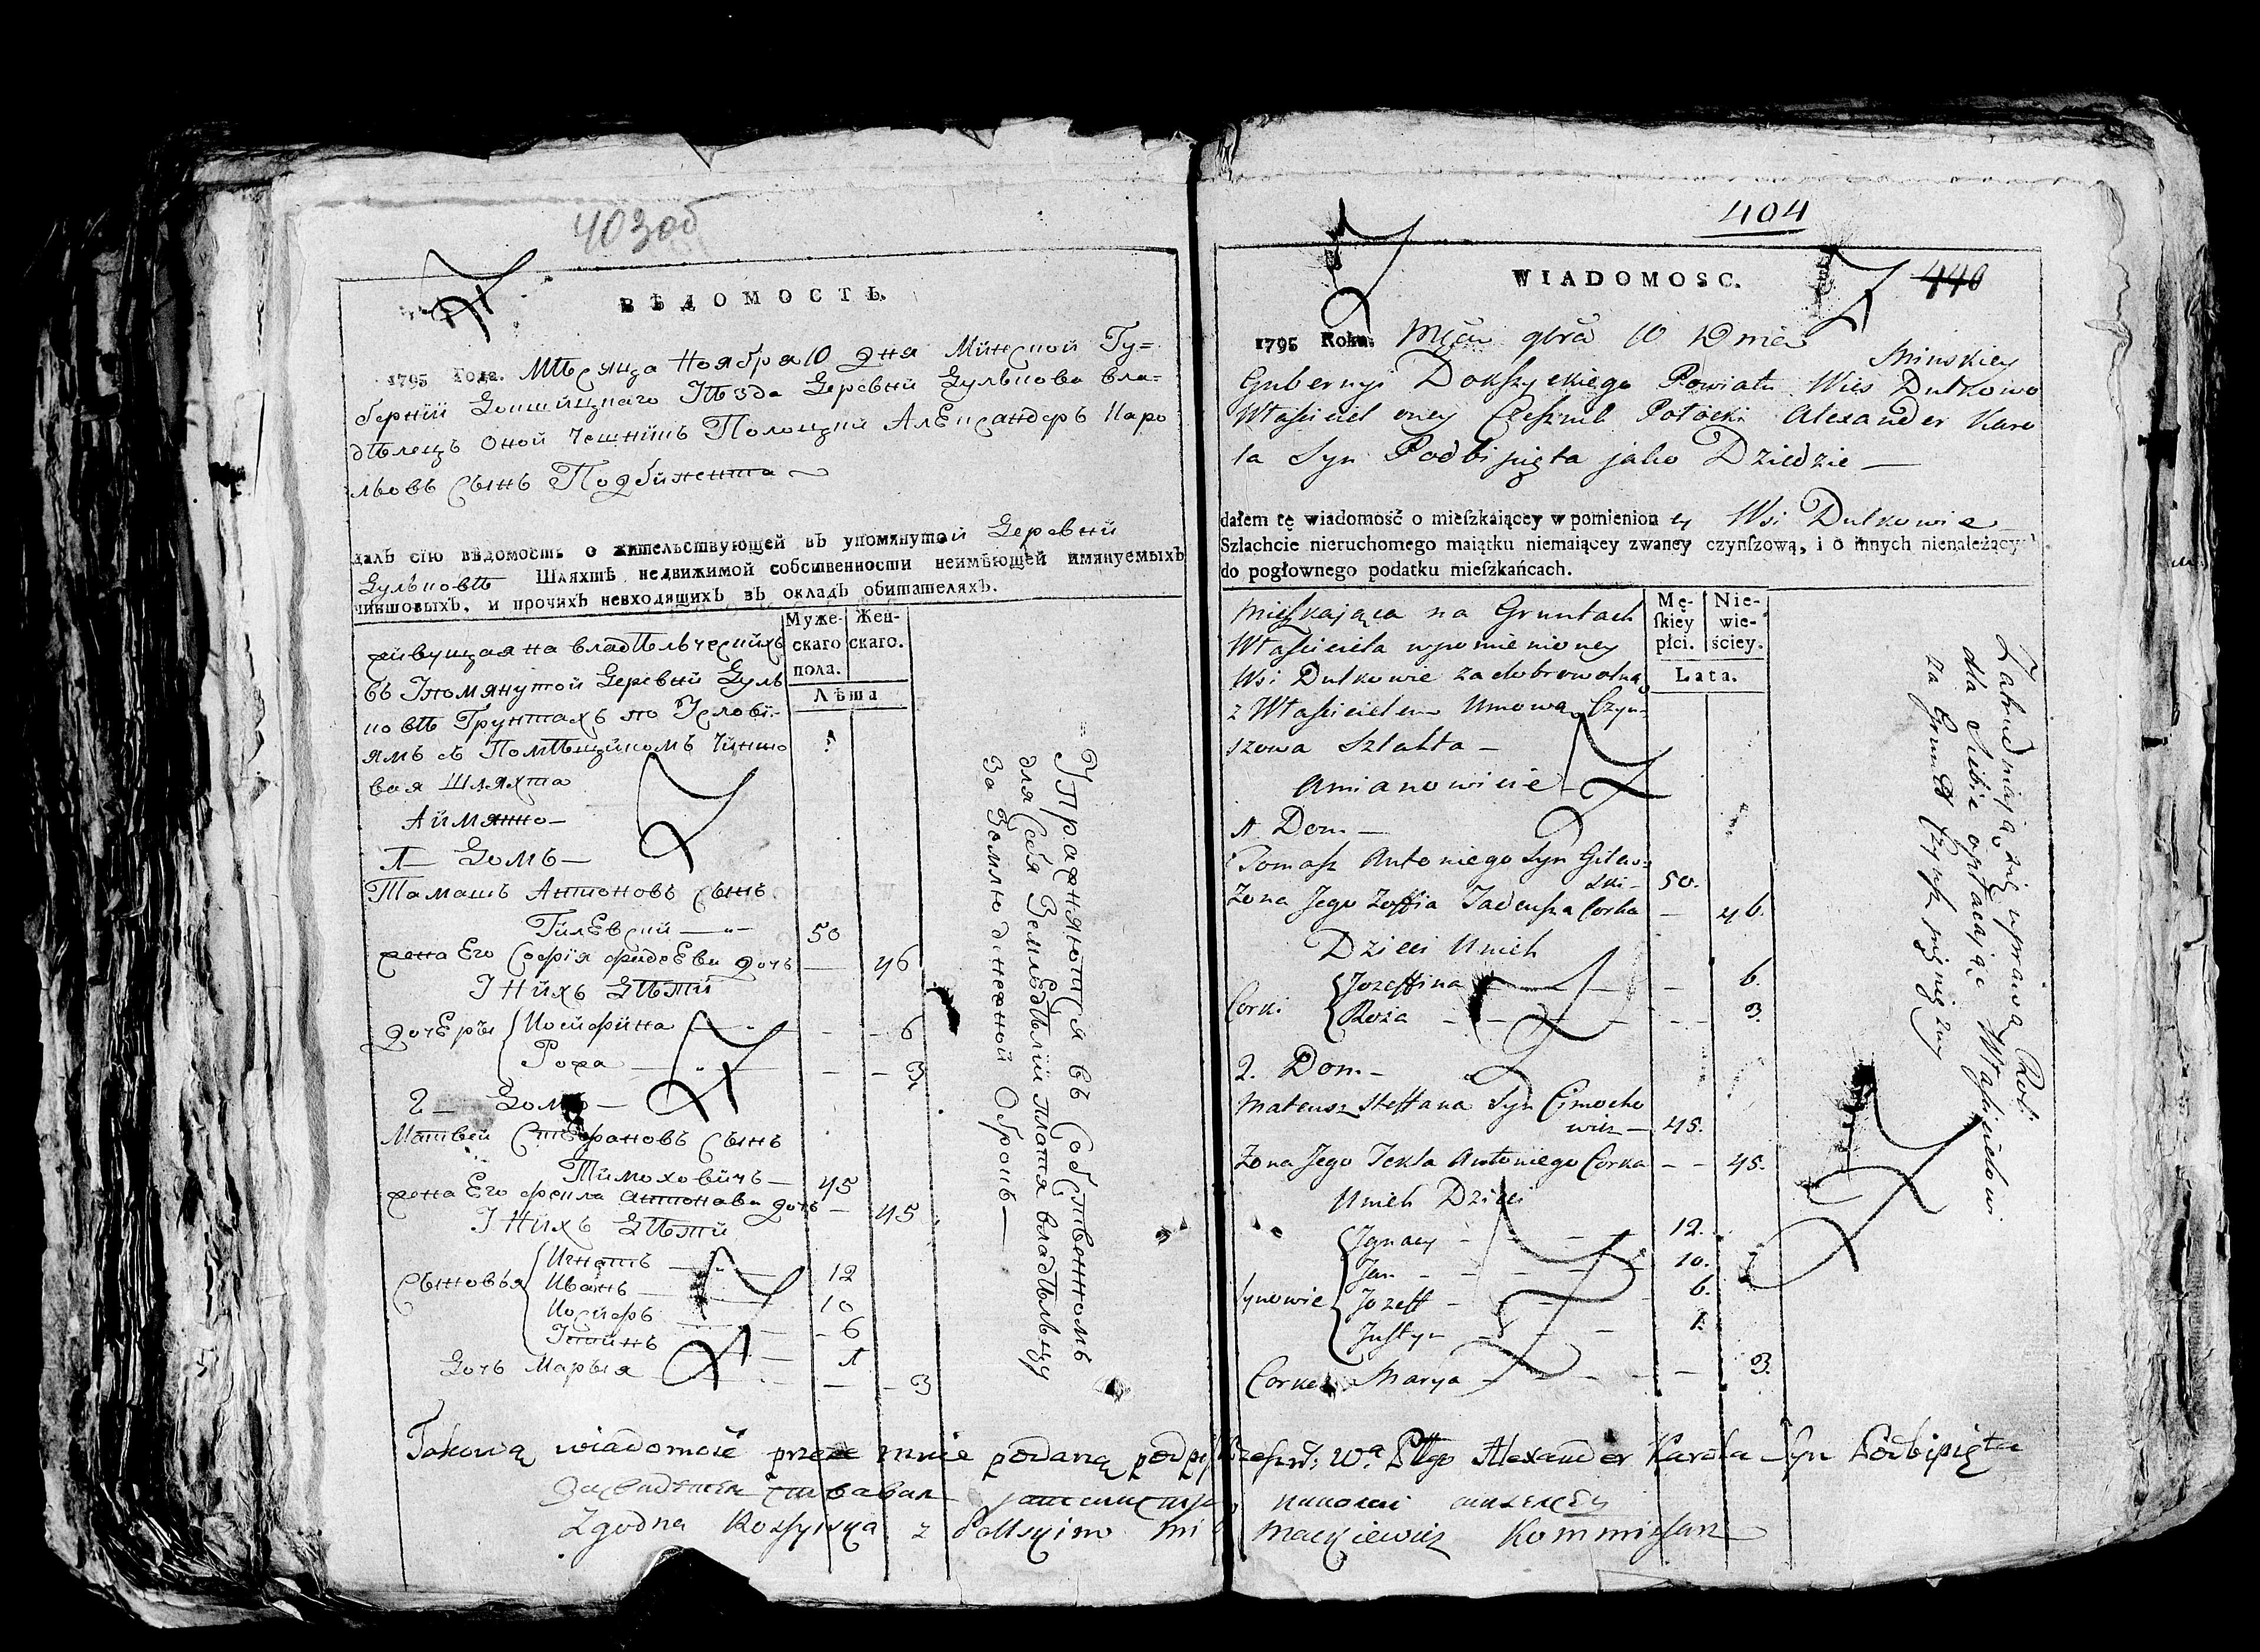 403об
ВѢДОМОСТЬ.
1795 Года. Мѣсяца Ноября 10 дня Минской Гу=
берніи Докшицкаго Уѣзда Деревни Дулькова вла=
дѣлецъ оной Чешникъ Полоцкій Александеръ Каро
льовъ сынъ Подбипента
далъ сію вѣдомость о жительствующей въ упомянутой Деревни
Дульковѣ Шляхтѣ недвижимой собственности неимѣющей имянуемыхъ
чиншовыхъ, и прочихъ невходящихъ въ окладъ обитателяхъ.
Муже- Жен-
скаго скаго.
пола.
Лѣта
живущая на владѣльческихъ
въ Упомянутой Деревни Дуль
ковѣ Грунтахъ по Услові-
ямъ съ Помѣщикомъ Чиншо
вая Шляхта
А имянно —
1 — Домъ —
Тамашъ Антоновъ сынъ
Гилевскій — 50
жена Его Софія Фадеева дочь — 46
У нихъ Дѣти
дочеры { Иосифина — — 6
Рожа — — 3
2 — Домъ —
Матвей Стефановъ сынъ
Тимоховичъ — 45
жена Его Фекла Антонова дочь — 45
У нихъ Дѣти
сыновья { Игнатъ — 12
Иванъ — 10
Иосифъ — 6
Устинъ — 1
Дочь Марья — — 3
Упражняются въ собственномъ
для себя Земледѣліи платя владѣльцу
За Землю денежной Оброкъ —
404
WIADOMOSC.
440
1795 Roku. Mca 9bra 10 Dnia Minskiey
Gubernyi Dokszyckiego Powiatu Wies Dulkowo
Własciciel oney Czesznik Połocki Alexander Karo
la Syn Podbipięta jako Dziedzic —
dałem tę wiadomość o mieſzkaiącey w pomienion ey Wsi Dulkowie
Szlachcie nieruchomego maiątku niemaiącey zwaney czynſzową, i o innych nienależących
do pogłownego podatku mieſzkańcach.
Mę- Nie-
ſkiey wie-
płci. ściey.
Lata.
Mieszkająca na Gruntach
Własciciela wpomienioney
Wsi Dulkowie za dobrowolną
z Własicielem Umową Czyn-
szowa Szlahta —
Amianowicie —
1 Dom —
Tomasz Antoniego Syn Gilew-
ski — 50.
Zona Jego Zoffia Tadeusza Corka — 46.
Dzieci Unich
Corki { Jozeffina — — 6.
Roza — — 3.
2. Dom —
Mateusz Steffana Syn Cimocho
wicz — 45.
Zona Jego Tekla Antoniego Corka — — 45.
Unich Dzieci
Synowie { Jgnacy — 12.
Jan — 10.
Jozeff — 6.
Justyn — 1.
Corka Marya — — 3.
Zatrudniają się uprawą Roli
dla Siebie opłacając Własicielowi
za Grunt Czynsz pięniężny
Takową wiadomość przeze mnie podaną podpis. Czesznk: Wa Pttgo Alexander Karola Syn Podbipięta
Zgodna Rossyiska z Polskim Mackiewicz Kommissarz